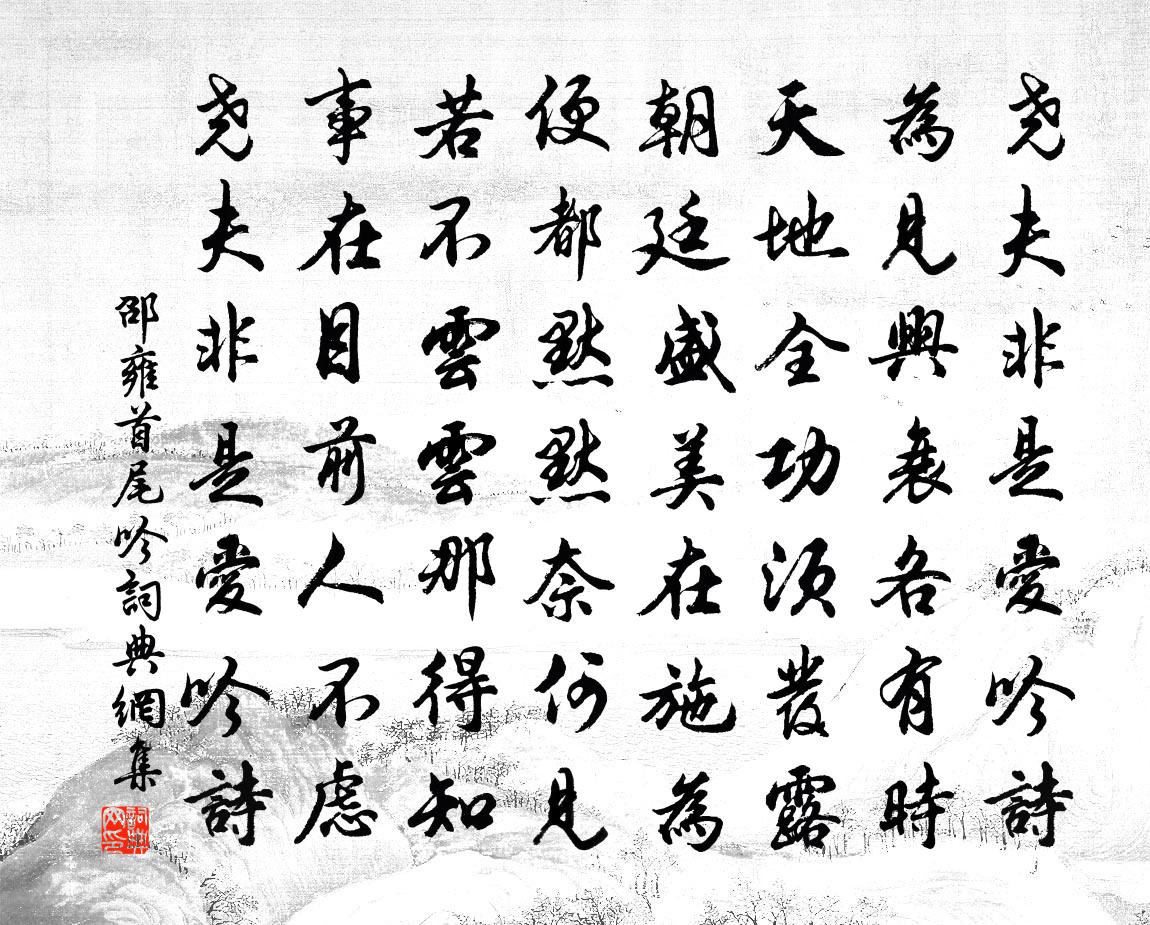 尧夫非是愛吟詩
為見興衰各有時
天地全功須發露
朝廷盛美在施為
便都默默奈何見
若不雲雲那得知
事在目前人不慮
尧夫非是愛吟詩
邵雍首尾吟詞典網集